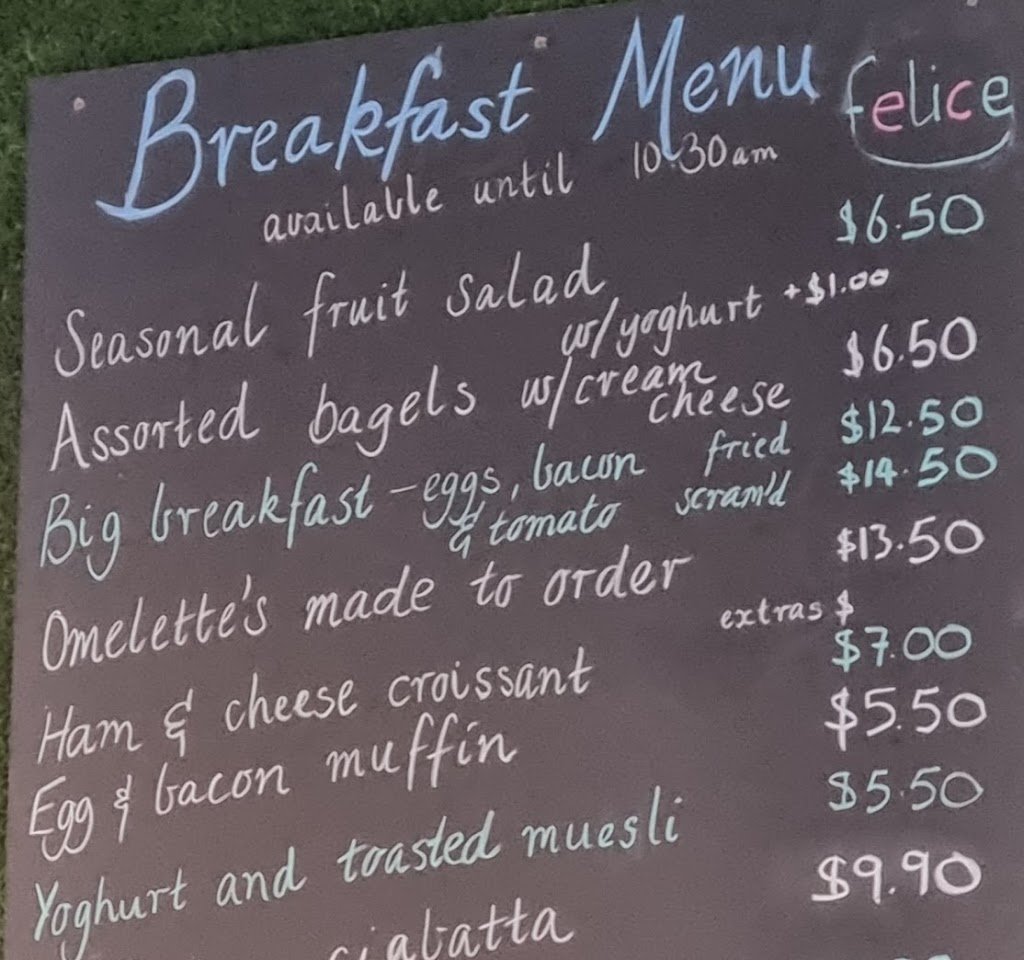 Breakfast Menu felice
available until 10.30am
Seasonal fruit salad $6.50
w/yoghurt +$1.00
Assorted bagels w/cream cheese $6.50
Big breakfast - eggs, bacon fried $12.50
& tomato scram'd $14.50
Omelette's made to order $13.50
extras $
Ham & cheese croissant $7.00
Egg & bacon muffin $5.50
Yoghurt and toasted muesli $5.50
ciabatta $9.90